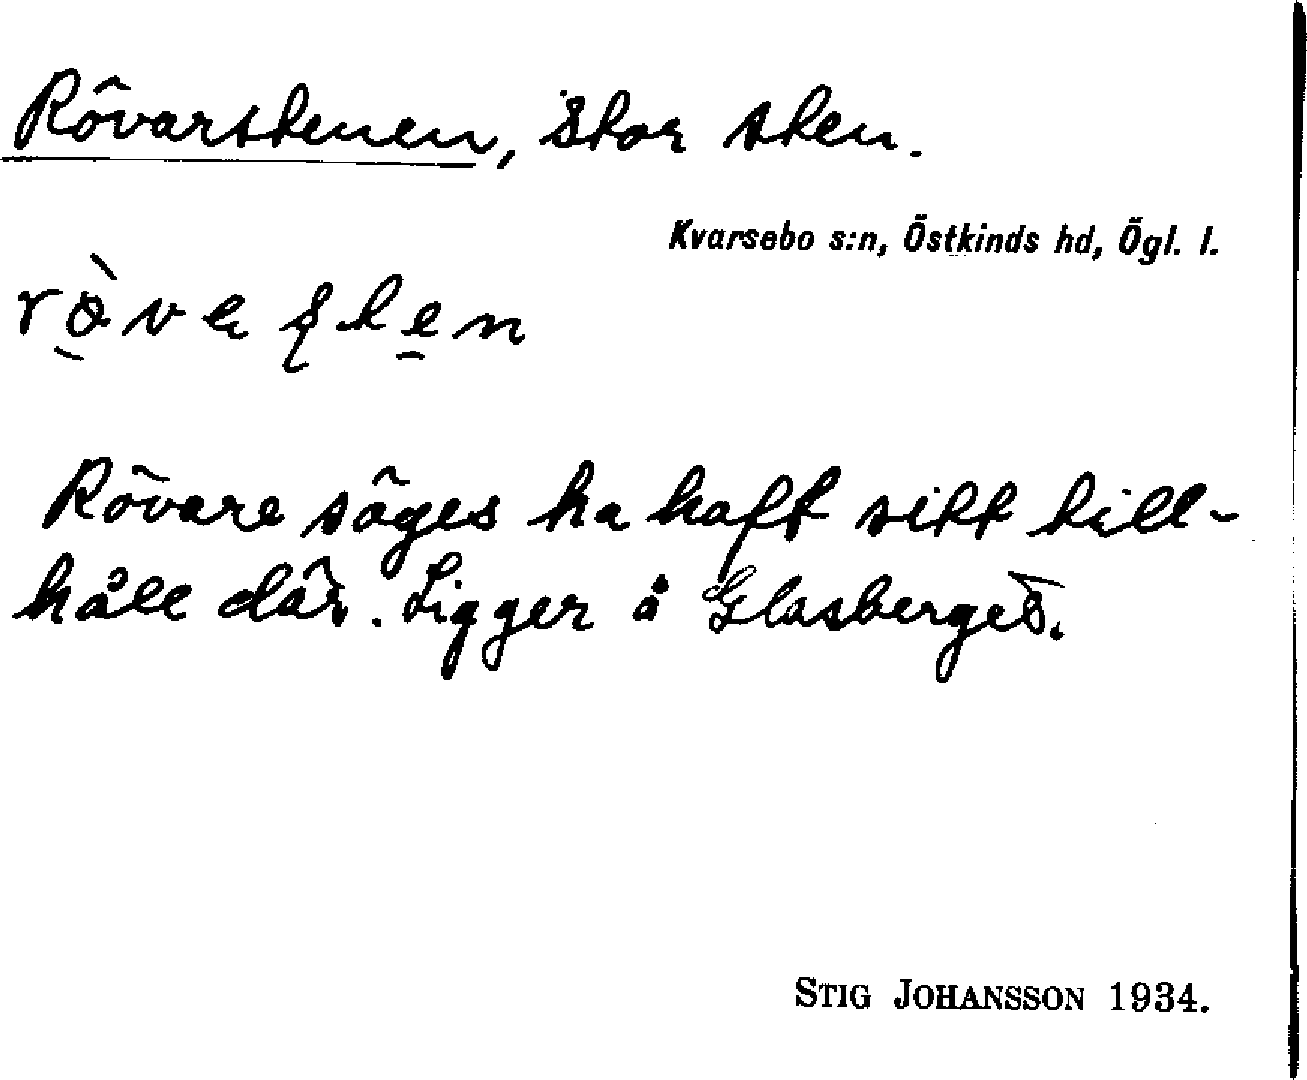 Rövarstenen, Stor sten.
Kvarsebo s:n, Östkinds hd, Ögl. l.
Rövare säges ha haft sitt till-
håll där. Ligger å Glasberget.
STIG JOHANSSON 1934.